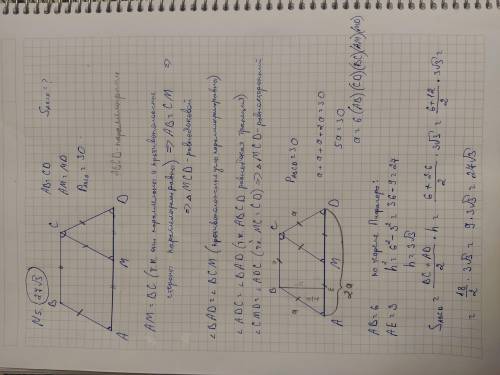 N5. 27√3
AB=CD
AM=MD
P_ABCD=30
S_ABCD=?
ABCM-параллелограмм
B C
A M D
AM=BC (т.к. они параллельны и противоположные
стороны параллелограмма) ⇒ AB=CM ⇒
⇒ △MCD-равнобедренный
∠BAD=∠BCM (противоположные углы параллелограмма)
∠ADC=∠BAD (т.к. ABCD равнобокая трапеция)
∠CMD=∠ADC (т.к. MC=CD) ⇒ △MCD-равносторонний
B a C
a a
A a/2 E M D
2a
P_ABCD=30
a+a+a+2a=30
5a=30
a=6 (AB)(CD)(BC)(AM)(MD)
AB=6 по теореме Пифагора:
AE=3 h²=6²-3²=36-9=27
h=3√3
S_ABCD=(BC+AD)/2·h=(6+2·6)/2·3√3=(6+12)/2·3√3=
=18/2·3√3=9·3√3=27√3